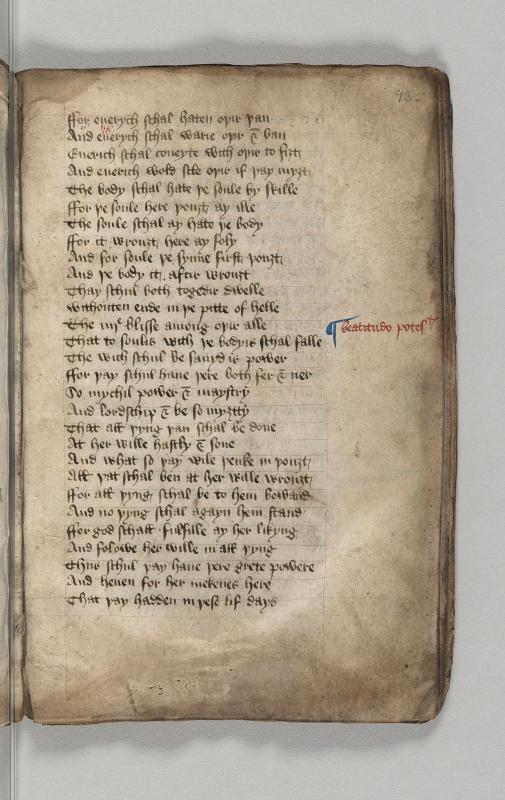 93
ffor euerych schal haten oþir þan
And euerych schal warie oþir & ban
Euerich schal coueyte with oþir to fiȝt
And euerich wold scle oþir if þay myȝt
The body schal hate þe soule by skille
ffor þe soule here þouȝt ay ille
The soule schal ay hate þe body
ffor it wrouȝt here ay foly
And for soule þe synne first þouȝt
And þe body it aftir wrouȝt
Thay schul both togedir dwelle
withouten ende in þe pitte of helle
The iiijᵉ blisse among oþir alle
That to soulis with þe bodyis schal falle
¶ beatitudo potestatis
The wich schul be sauyd is power
ffor þay schul haue þere both fer & ner
So mychil power & maystry
And lordschip & be so myȝtty
That all þyng þan schal be done
At her wille hastly & sone
And what so þay wile þenke in þouȝt
All þat schal ben at her wille wrouȝt
ffor all þyng schal be to hem bowand
And no þyng schal agayn hem stand
ffor god schall fulfille ay her likyng
And folowe her wille in all þyng
Thus schul þay haue þere grete powere
And heuen for her mekenes here
That þay hadden in þest lif days